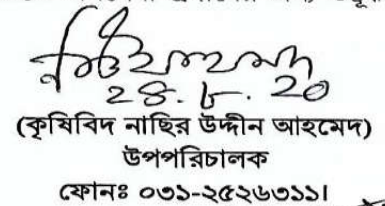 28.৮.20
(কৃষিবিদ নাছির উদ্দীন আহমেদ)
উপপরিচালক
ফোনঃ ০৩১-২৫২৬৩১১।